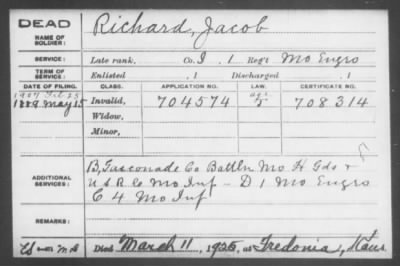 DEAD
NAME OF SOLDIER: Richard, Jacob
SERVICE: Late rank, Co. I . 1 Reg't Mo Engrs
TERM OF SERVICE: Enlisted , 1 Discharged , 1
DATE OF FILING. CLASS. APPLICATION NO. LAW. CERTIFICATE NO.
1907 Feb 25 age
1889 May 15 Invalid, 704574 708314
Widow,
Minor,
ADDITIONAL SERVICES: B, Gasconade Co Battln Mo H Gds &
U S R C Mo Inf - D 1 Mo Engrs
C 4 Mo Inf
REMARKS:
Died March 11, 1925, at Fredonia, Kans